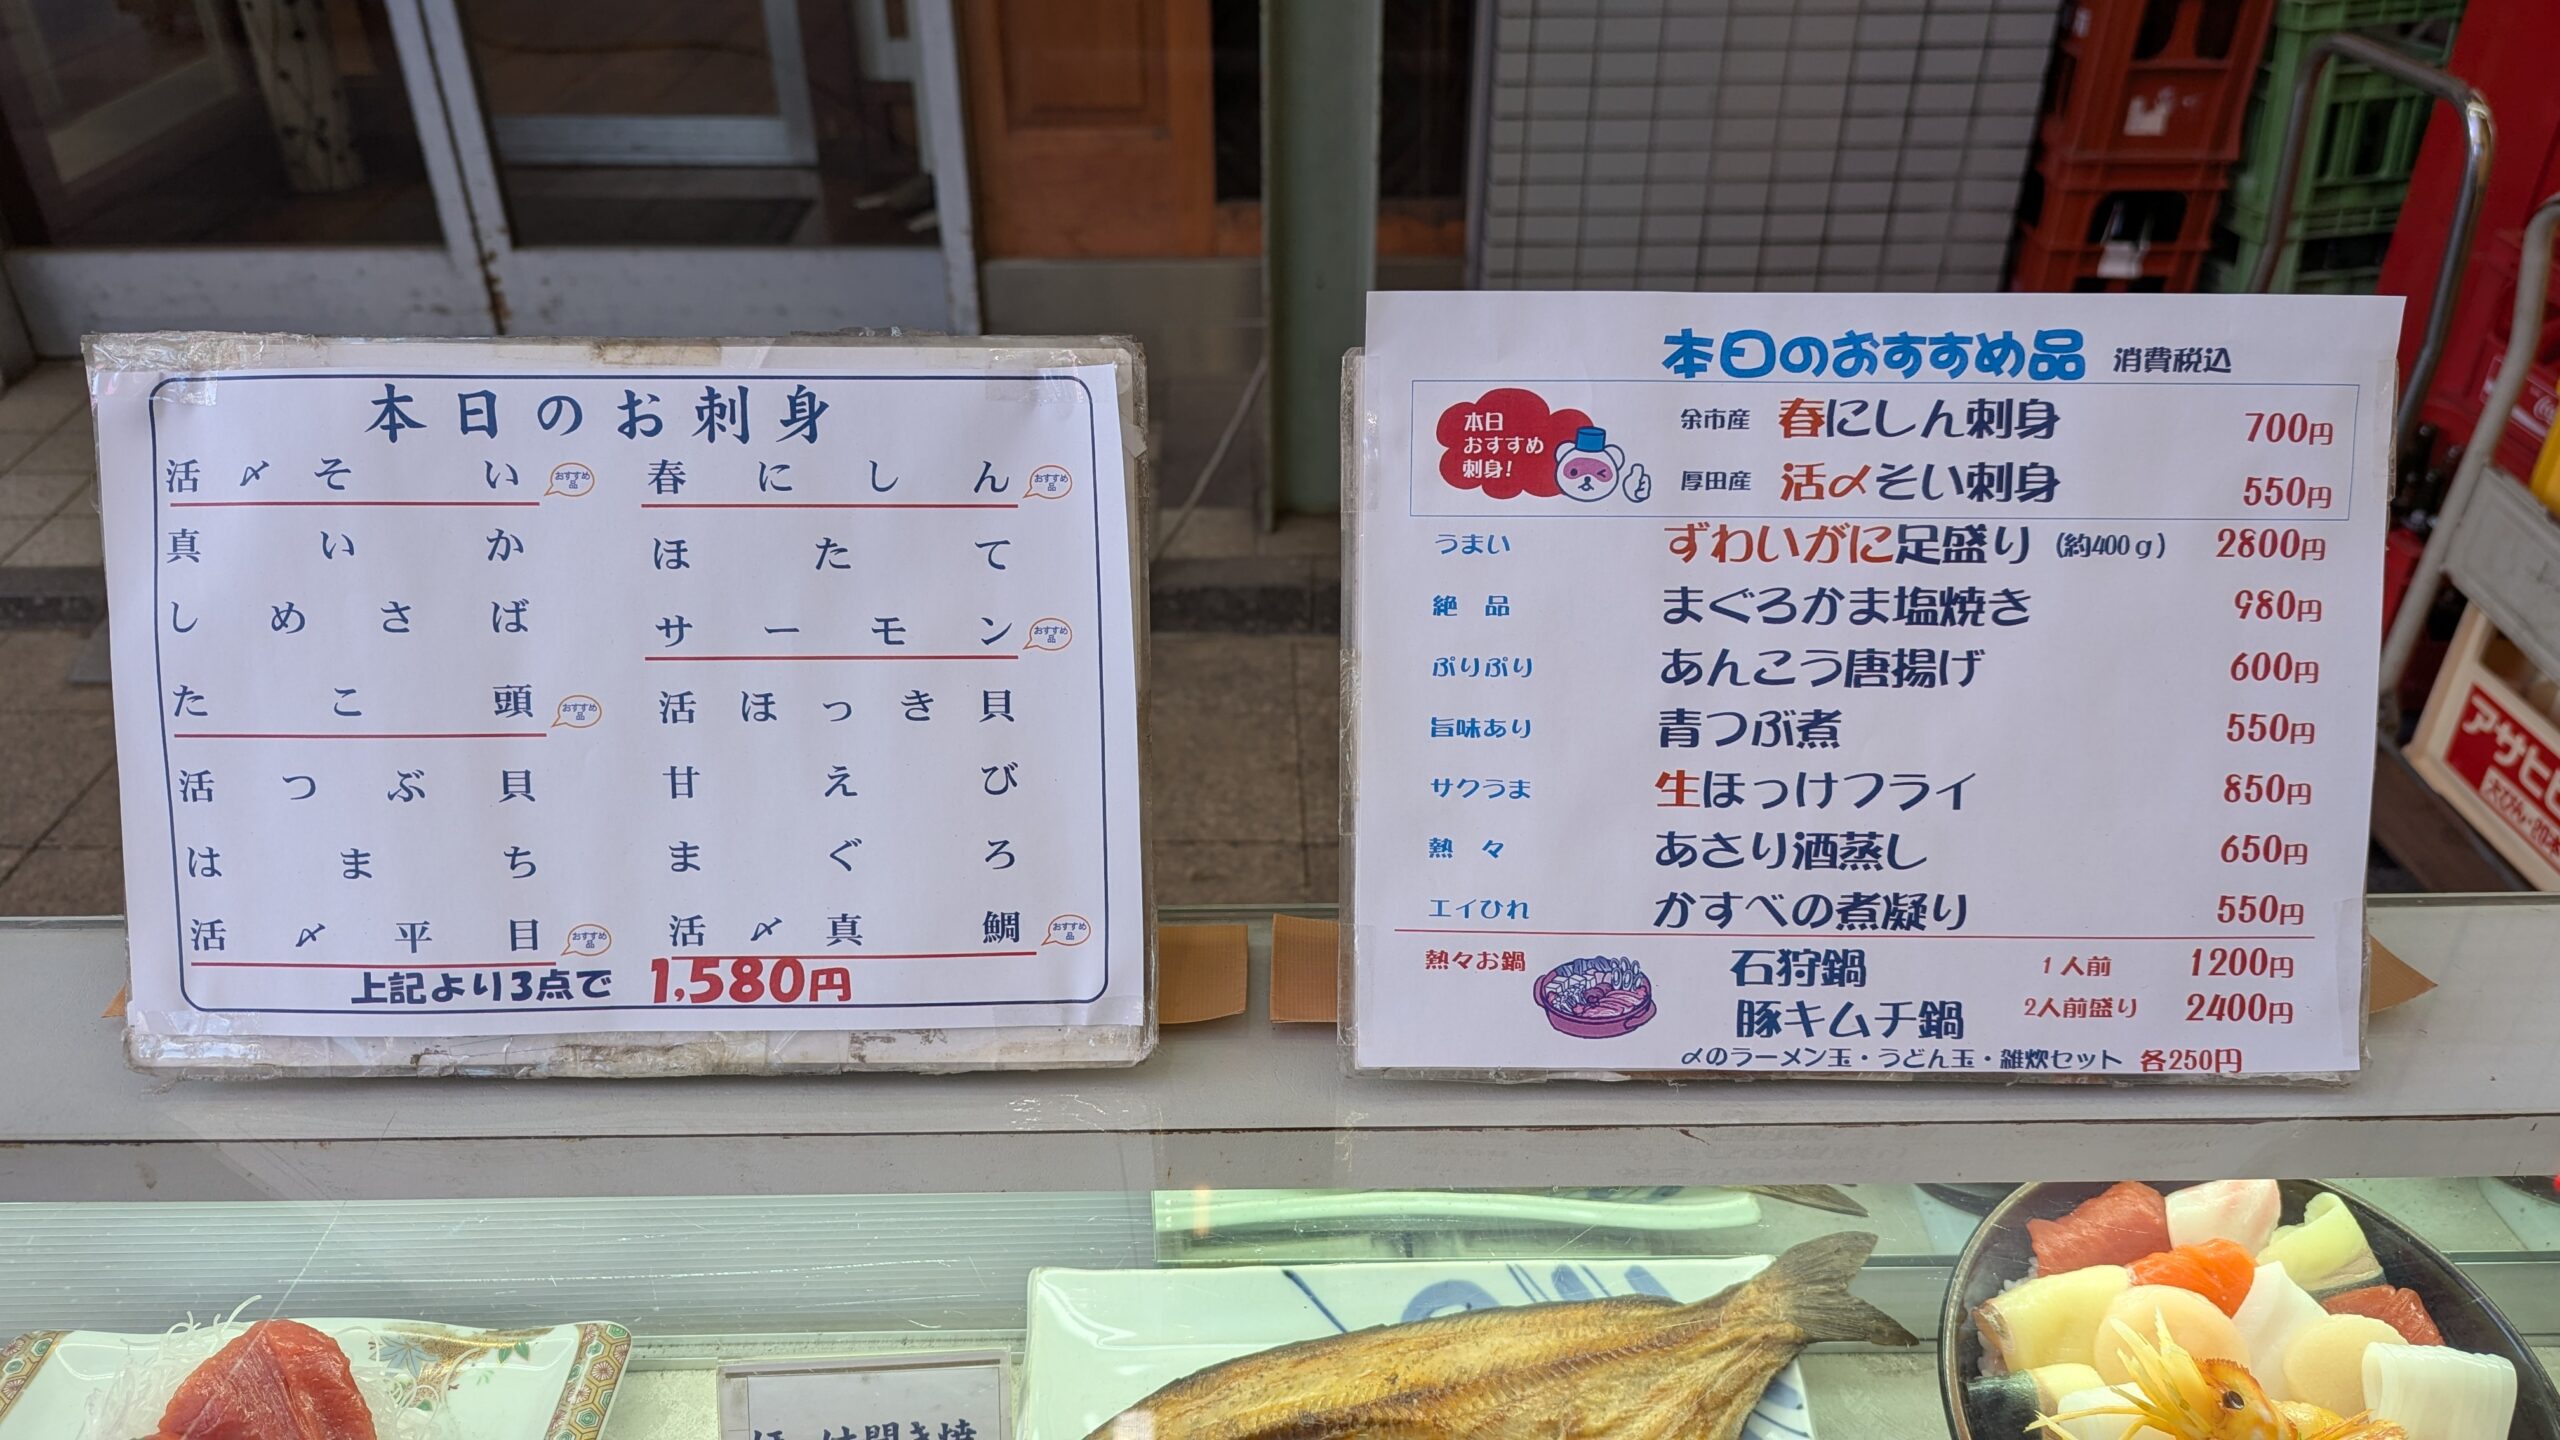 本日のお刺身
活〆そい おすすめ品
真いか
しめさば
たこ頭 おすすめ品
活つぶ貝
はまち
活〆平目 おすすめ品
春にしん おすすめ品
ほたて
サーモン おすすめ品
活ほっき貝
甘えび
まぐろ
活〆真鯛 おすすめ品
上記より3点で 1,580円
本日のおすすめ品 消費税込
本日
おすすめ
刺身!
余市産 春にしん刺身 700円
厚田産 活〆そい刺身 550円
うまい ずわいがに足盛り (約400g) 2800円
絶品 まぐろかま塩焼き 980円
ぷりぷり あんこう唐揚げ 600円
旨味あり 青つぶ煮 550円
サクうま 生ほっけフライ 850円
熱々 あさり酒蒸し 650円
エイひれ かすべの煮凝り 550円
熱々お鍋 石狩鍋 1人前 1200円
豚キムチ鍋 2人前盛り 2400円
〆のラーメン玉・うどん玉・雑炊セット 各250円
アサヒビ
大びん・20本
ほっけ開き焼